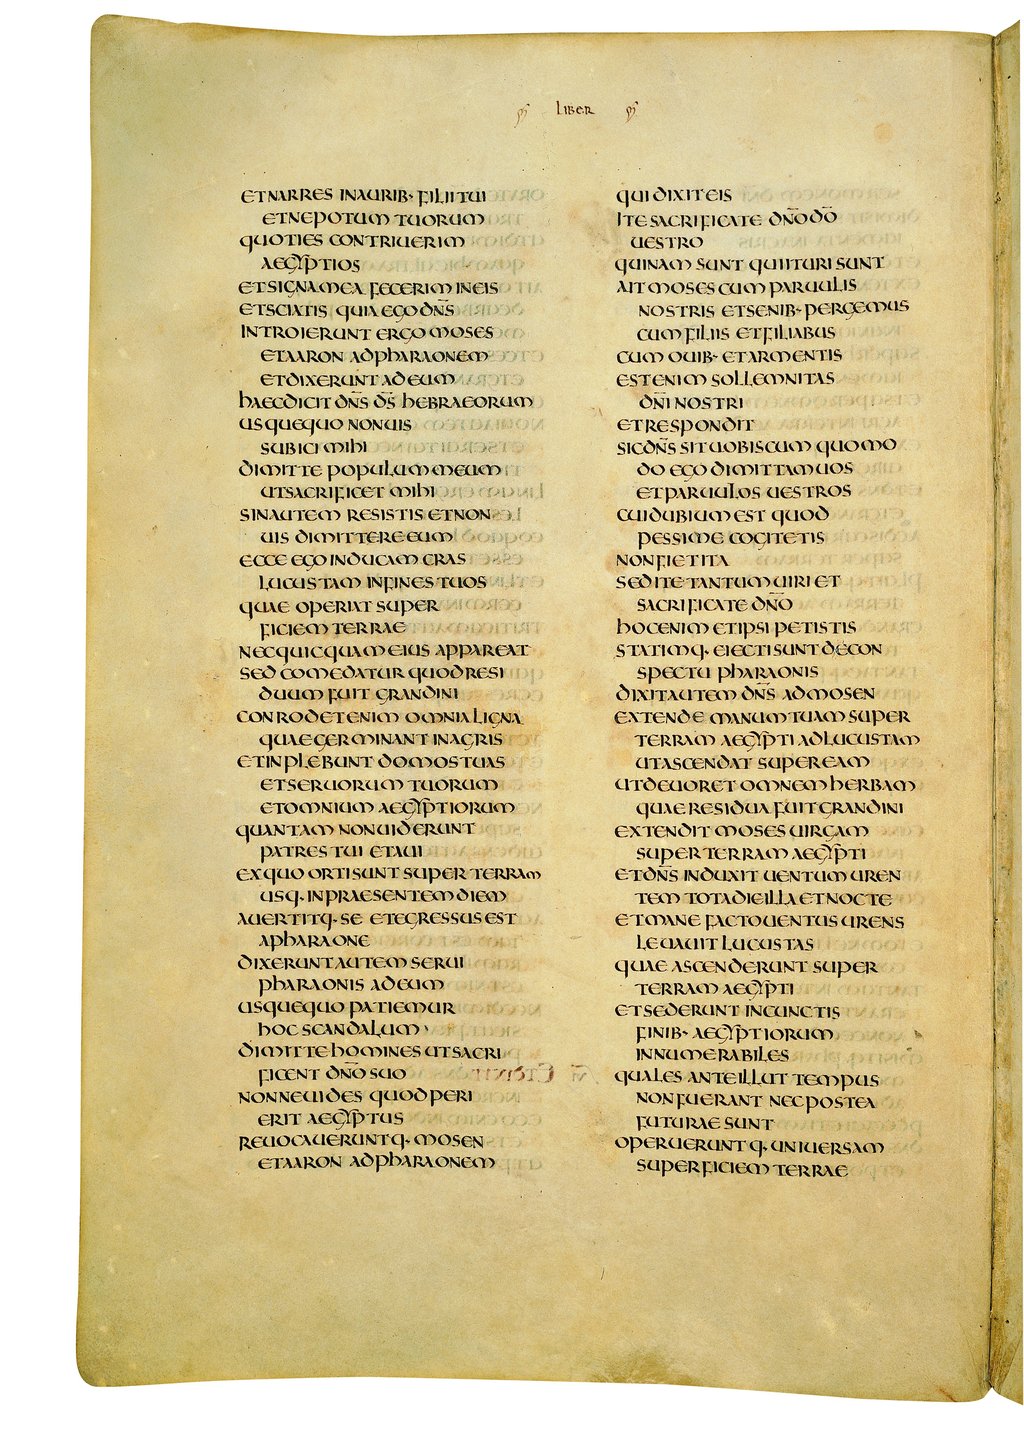 LIBER
ET NARRES IN AURIB· FILII TUI
ET NEPOTUM TUORUM
QUOTIES CONTRIUERIM
AEGYPTIOS
ET SIGNA MEA FECERIM IN EIS
ET SCIATIS QUIA EGO DN̅S
INTROIERUNT ERGO MOSES
ET AARON AD PHARAONEM
ET DIXERUNT AD EUM
HAEC DICIT DN̅S D̅S HEBRAEORUM
USQUEQUO NON UIS
SUBICI MIHI
DIMITTE POPULUM MEUM
UT SACRIFICET MIHI
SIN AUTEM RESISTIS ET NON
UIS DIMITTERE EUM
ECCE EGO INDUCAM CRAS
LUCUSTAM IN FINES TUOS
QUAE OPERIAT SUPER
FICIEM TERRAE
NEC QUICQUAM EIUS APPAREAT
SED COMEDATUR QUOD RESI
DUUM FUIT GRANDINI
CONRODET ENIM OMNIA LIGNA
QUAE GERMINANT IN AGRIS
ET INPLEBUNT DOMOS TUAS
ET SERUORUM TUORUM
ET OMNIUM AEGYPTIORUM
QUANTAM NON UIDERUNT
PATRES TUI ET AUI
EX QUO ORTI SUNT SUPER TERRAM
USQ· IN PRAESENTEM DIEM
AUERTITQ· SE ET EGRESSUS EST
A PHARAONE
DIXERUNT AUTEM SERUI
PHARAONIS AD EUM
USQUEQUO PATIEMUR
HOC SCANDALUM
DIMITTE HOMINES UT SACRI
FICENT DN̅O SUO
NONNE UIDES QUOD PERI
ERIT AEGYPTUS
REUOCAUERUNTQ· MOSEN
ET AARON AD PHARAONEM
QUI DIXIT EIS
ITE SACRIFICATE DN̅O D̅O
UESTRO
QUINAM SUNT QUI ITURI SUNT
AIT MOSES CUM PARUULIS
NOSTRIS ET SENIB· PERGEMUS
CUM FILIIS ET FILIABUS
CUM OUIB· ET ARMENTIS
EST ENIM SOLLEMNITAS
DN̅I NOSTRI
ET RESPONDIT
SIC DN̅S SIT UOBISCUM QUOMO
DO EGO DIMITTAM UOS
ET PARUULOS UESTROS
CUI DUBIUM EST QUOD
PESSIME COGITETIS
NON FIET ITA
SED ITE TANTUM UIRI ET
SACRIFICATE DN̅O
HOC ENIM ET IPSI PETISTIS
STATIMQ· EIECTI SUNT DE CON
SPECTU PHARAONIS
DIXIT AUTEM DN̅S AD MOSEN
EXTENDE MANUM TUAM SUPER
TERRAM AEGYPTI AD LUCUSTAM
UT ASCENDAT SUPER EAM
UT DEUORET OMNEM HERBAM
QUAE RESIDUA FUIT GRANDINI
EXTENDIT MOSES UIRGAM
SUPER TERRAM AEGYPTI
ET DN̅S INDUXIT UENTUM UREN
TEM TOTA DIE ILLA ET NOCTE
ET MANE FACTO UENTUS URENS
LEUAUIT LUCUSTAS
QUAE ASCENDERUNT SUPER
TERRAM AEGYPTI
ET SEDERUNT IN CUNCTIS
FINIB· AEGYPTIORUM
INNUMERABILES
QUALES ANTE ILLUT TEMPUS
NON FUERANT NEC POSTEA
FUTURAE SUNT
OPERUERUNTQ· UNIUERSAM
SUPERFICIEM TERRAE